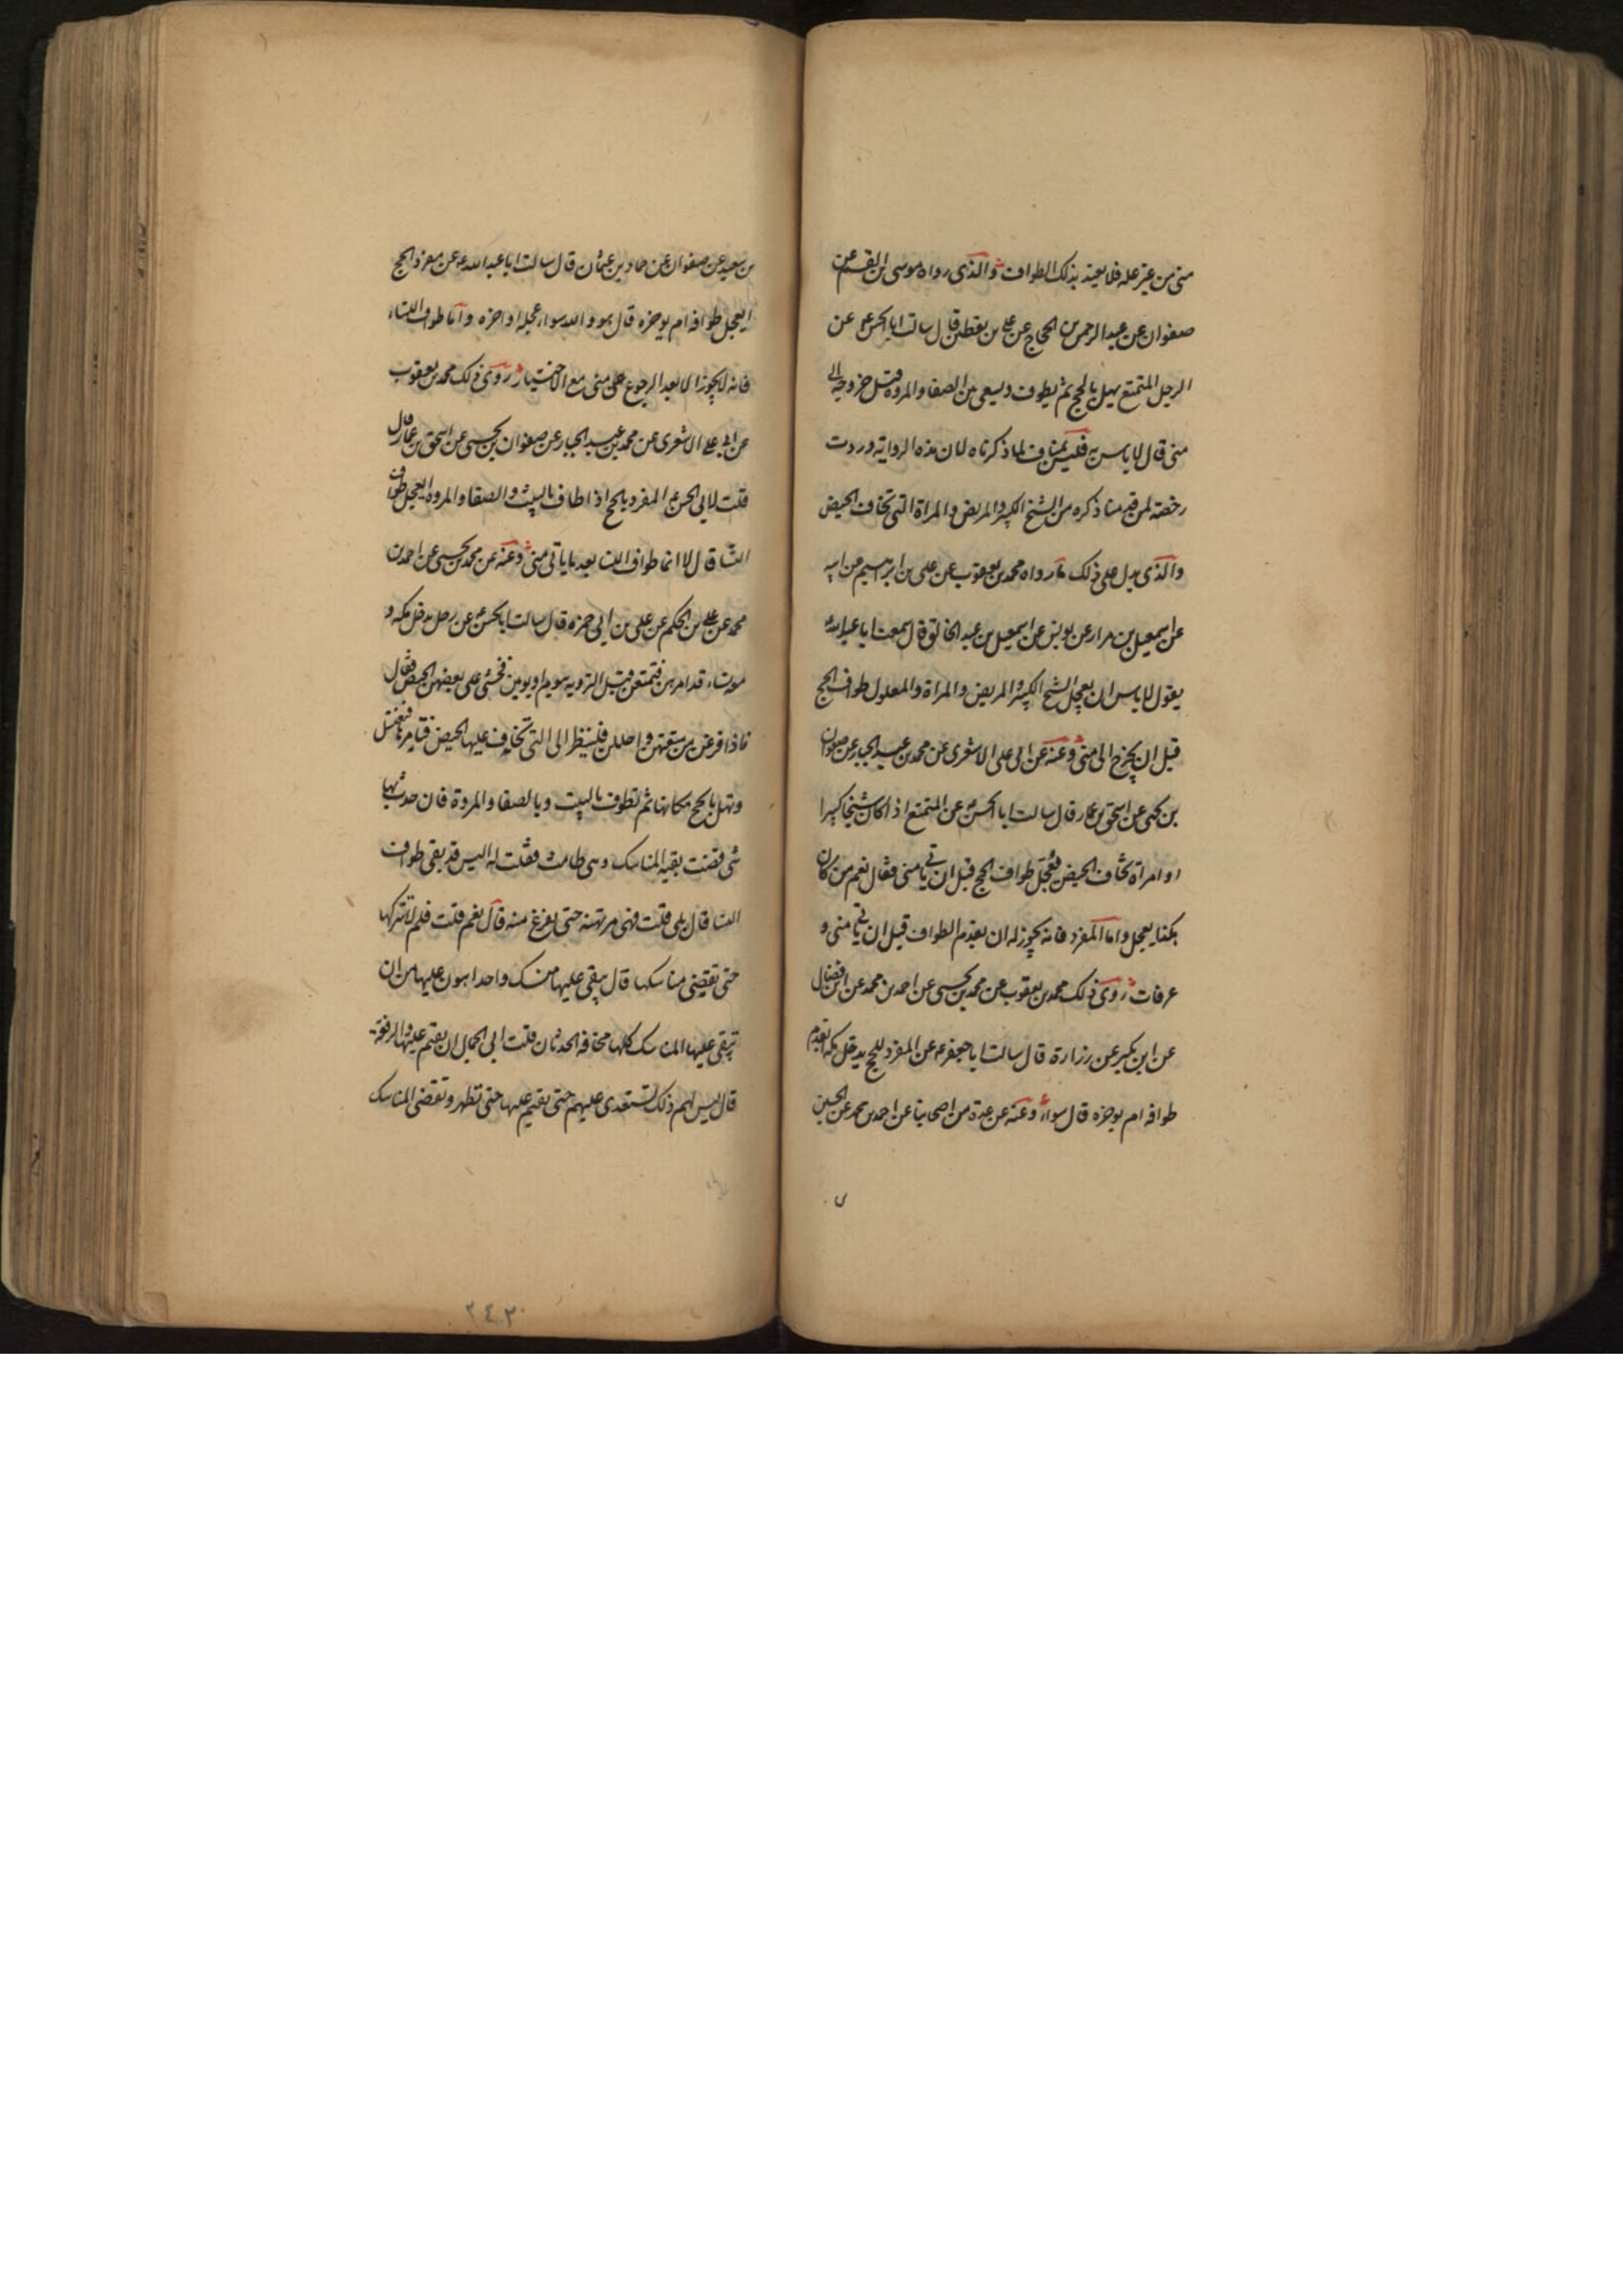 منى من غير علة فلا يعتد بذلك الطواف والذى رواه موسى بن القسم عن
صفوان عن عبد الرحمن بن الحجاج عن على بن يقطين قال سالت ابا الحسن ع عن
الرجل المتمتع يهل بالحج ثم يطوف ويسعى بين الصفا والمروة قبل خروجه الى
منى قال لا باس به فليس بمناف لما ذكرناه لان هذه الرواية وردت
رخصة لمن قدمنا ذكره من الشيخ الكبير والمريض والمراة التى تخاف الحيض
والذى يدل على ذلك ما رواه محمد بن يعقوب عن على بن ابرهيم عن ابيه
عن اسمعيل بن مرار عن يونس عن اسمعيل بن عبد الخالق قال سمعت ابا عبد الله
يقول لا باس ان يعجل الشيخ الكبير والمريض والمراة والمعلول طواف الحج
قبل ان يخرج الى منى وعنه عن ابى على الاشعرى عن محمد بن عبد الجبار عن صفوان
بن يحيى عن اسحق بن عمار قال سالت ابا الحسن ع عن المتمتع اذا كان شيخا كبيرا
او امراة تخاف الحيض تعجل طواف الحج قبل ان ياتى منى فقال نعم من كان
هكذا يعجل واما المفرد فانه يجوز له ان يقدم الطواف قبل ان ياتى منى و
عرفات روى ذلك محمد بن يعقوب عن محمد بن يحيى عن احمد بن محمد عن ابن فضال
عن ابن بكير عن زرارة قال سالت ابا جعفر ع عن المفرد للحج يدخل مكة يقدم
طوافه ام يوخره قال سواء وعنه عن عدة من اصحابنا عن احمد بن محمد عن الحسين
بن سعيد عن صفوان عن حماد بن عثمان قال سالت ابا عبد الله ع عن مفرد الحج
ايعجل طوافه ام يوخره قال هو والله سواء عجله او اخره واما طواف النساء
فانه لا يجوز الا بعد الرجوع من منى مع الاختيار روى ذلك محمد بن يعقوب
عن ابى على الاشعرى عن محمد بن عبد الجبار عن صفوان بن يحيى عن اسحق بن عمار قال
قلت لابى الحسن ع المفرد بالحج اذا طاف بالبيت والصفا والمروة ايعجل طواف
النسا قال لا انما طواف النسا بعد ما ياتى منى وعنه عن محمد بن يحيى عن احمد بن
محمد عن على بن الحكم عن على بن ابى حمزه قال سالت ابا الحسن ع عن رجل يدخل مكه و
معه نساء قد امرهن فتمتعن قبل التروية بيوم او يومين فخشى على بعضهن الحيض فقال
فاذا فرغن من متعتهن واحللن فلينظر الى التى يخاف عليها الحيض فيامرها فتغتسل
وتهل بالحج مكانها ثم تطوف بالبيت وبالصفا والمروة فان حدث بها
شى قضت بقيه المناسك وهى طامث فقلت له اليس قد بقى طواف
النسا قال بلى قلت فهى مرتهنة حتى تفرغ منه قال نعم قلت فلم لا تتركها
حتى تقضى مناسكها قال يبقى عليها منسك واحد اهون عليها من ان
تبقى عليها المناسك كلها مخافة الحدثان قلت ابى الجمال ان يقيم عليها والرفقة
قال ليس لهم ذلك تستعدى عليهم حتى يقيم عليها حتى تطهر وتقضى المناسك
٢٤٣